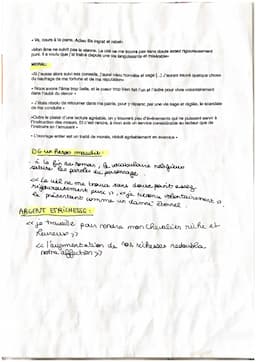 « Va, cours à la perte. Adieu fils ingrat et rebelle »
«Mon âme ne suivit pas la sienne. Le ciel ne me trouva pas sans doute assez rigoureusement
puni. Il a voulu que j'ai traîné depuis une vie languissante et misérable»
MORAL:
«Si j'eusse alors suivi ses conseils, j'aurai vécu sage [...] J'aurais sauvé quelque chose
du naufrage de ma fortune et de ma réputation»
« Nous avons l'âme trop belle, et le coeur trop bien fait l'un et l'autre pour vivre volontairement
dans l'oubli du devoir »
« J'étais résolu de retourner dans ma patrie, pour y réparer, par une vie sage et réglée, le scandale
de ma conduite »
«Outre le plaisir d'une lecture agréable, on y trouvera peu d'événements qui ne puissent servir à
l'instruction des mœurs. Et c'est rendre, à mon avis un service considérable au lecteur que de
l'instruire en l'amusant »
« L'ouvrage entier est un traité de morale, réduit agréablement en exercice »
DG un héros maudit:
- à la fin du roman, le vocabulaire religieux
les paroles du personnage
« Le ciel ne me trouva sans doute point assez
rigoureusement puni », «je renonce volontairement »
le présentant comme un damné éternel.
ARGENT ET RICHESSE:
«je travaille pour rendre mon chevalier riche et
heureux »
« l'augmentation de nos richesses redoubla
notre affection »